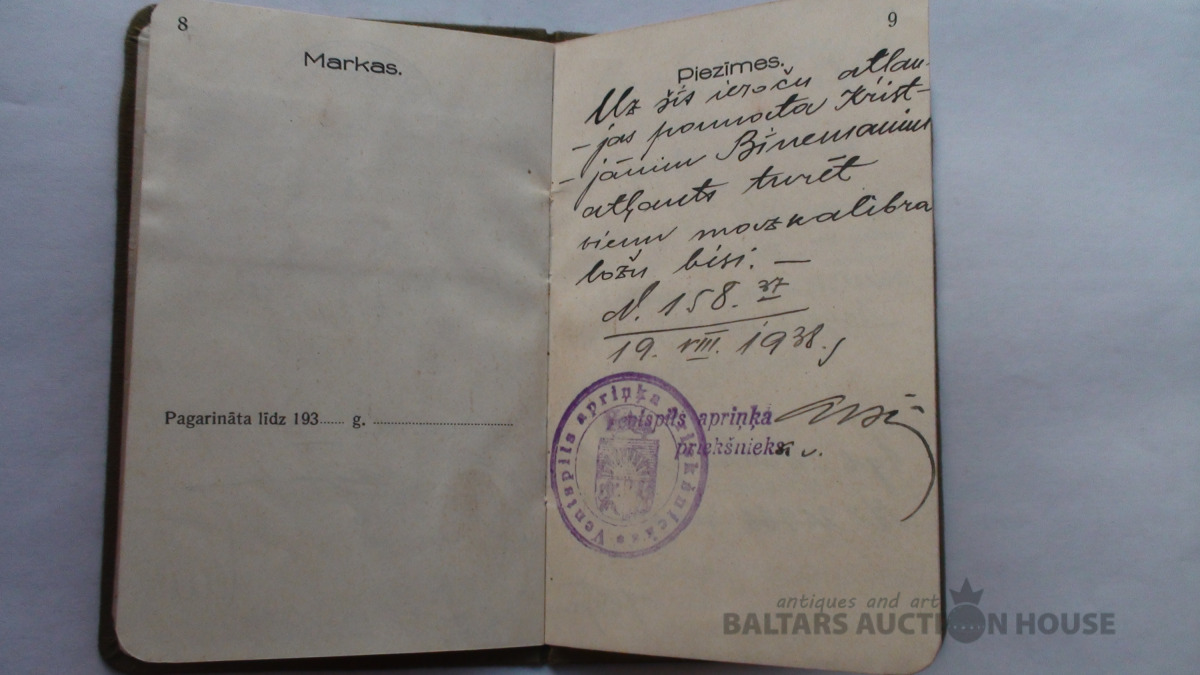 8
Markas.
Pagarināta līdz 193...... g. ........................
9
Piezīmes.
Uz šīs ieroču atļau-
-jas pamata Krist-
-jānim Bīnemanim
atļauts turēt
vienu mazkalibra
ložu bisi. —
N. 158. 37/V
19. VIII. 1938. g
Ventspils apriņķa
priekšnieks v.
Ventspils apriņķa priekšnieks
antiques and art
BALTARS AUCTION HOUSE